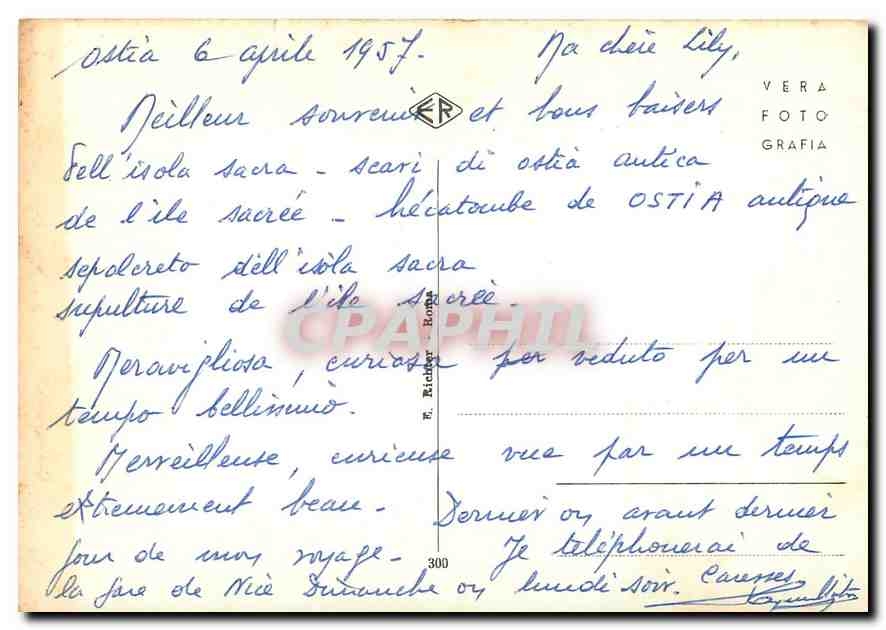 Ostia 6 aprile 1957. Ma chère Lily,
VERA
FOTO
GRAFIA
ER
Meilleur souvenir et bons baisers
Dell'isola sacra - scavi di ostia antica
de l'ile sacrée - hécatombe de OSTIA antique
sepolcreto dell'isola sacra
supulture de l'ile sacrée.
CPAPHIL
E. Richter - Roma
Meravigliosa, curiosa per veduta per un
tempo bellissimo.
Merveilleuse, curieuse vue par un temps
extremement beau. Dernier ou avant dernier
jour de mon voyage - Je téléphonerai de
300
la gare de Nice Dimanche ou lundi soir. Caresses